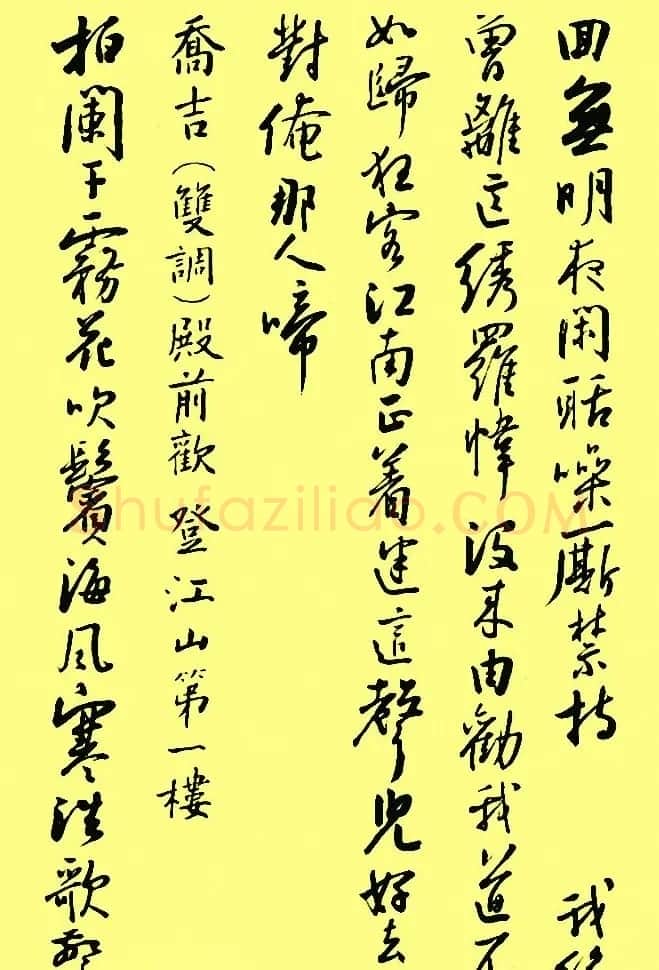 回無明夜閑聒噪廝禁持 我
曾離这绣羅幃没来由勸我道不
如歸狂客江南正着迷這聲兒好去
對俺那人啼
喬吉（雙調）殿前歡 登江山第一樓
拍闌干霧花吹鬢海風寒浩歌
Shufaziliao.COM